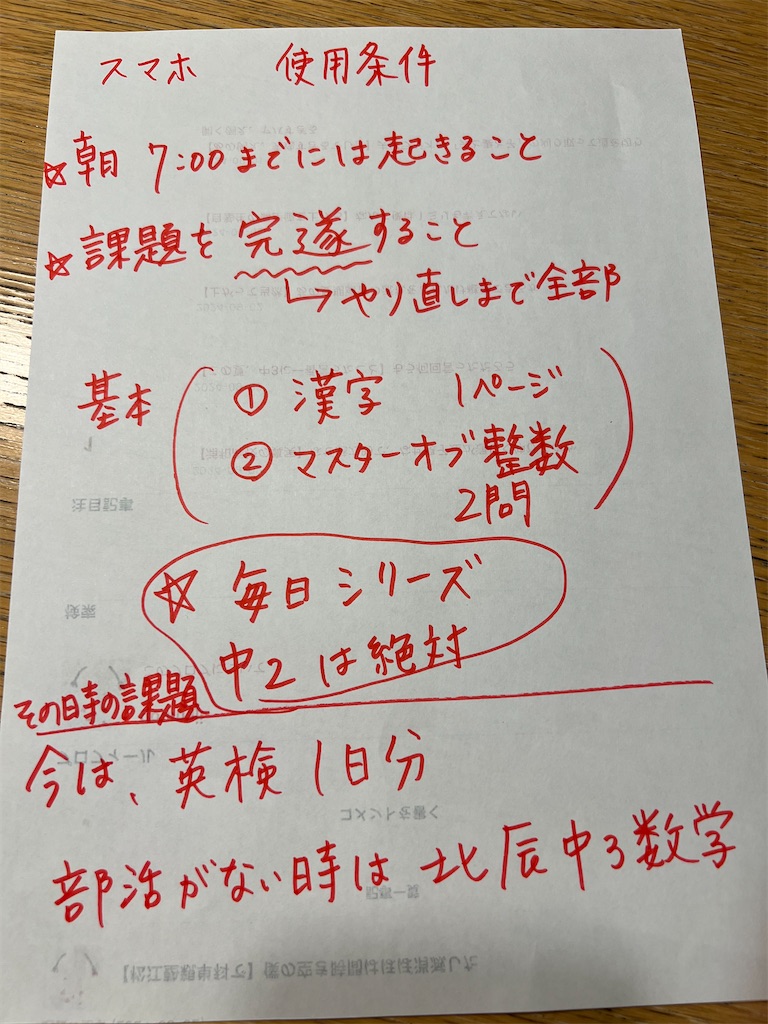 スマホ 使用条件
☆朝 7:00までには起きること
☆課題を完遂すること
→やり直しまで全部
基本 ① 漢字 1ページ
② マスターオブ整数
2問
☆ 毎日シリーズ
中2は絶対
その時の課題
今は、英検1日分
部活がない時は 北辰中3数学
注目記事
検索
プロフィール
コメントを書く
記事一覧